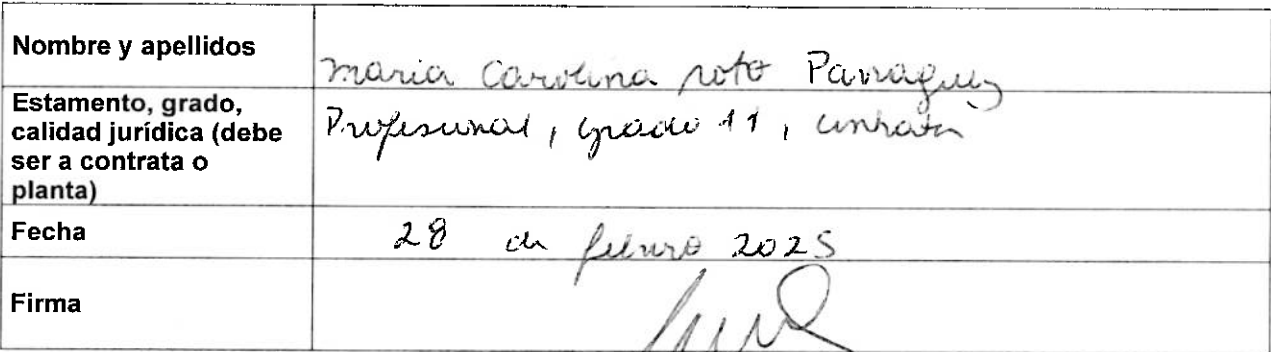 Nombre y apellidos
maria Carolina soto Parraguez
Estamento, grado,
calidad jurídica (debe
ser a contrata o
planta)
Profesional, grado 11, contrata
Fecha
28 de febrero 2025
Firma